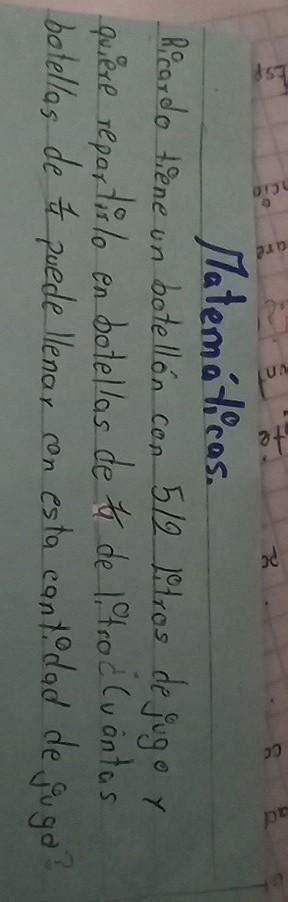 Matemáticas.
Ricardo tiene un botellón con 5/2 litros de jugo y
quiere repartirlo en botellas de 1/4 de litro ¿Cuántas
botellas de 1/4 puede llenar con esta cantidad de jugo?